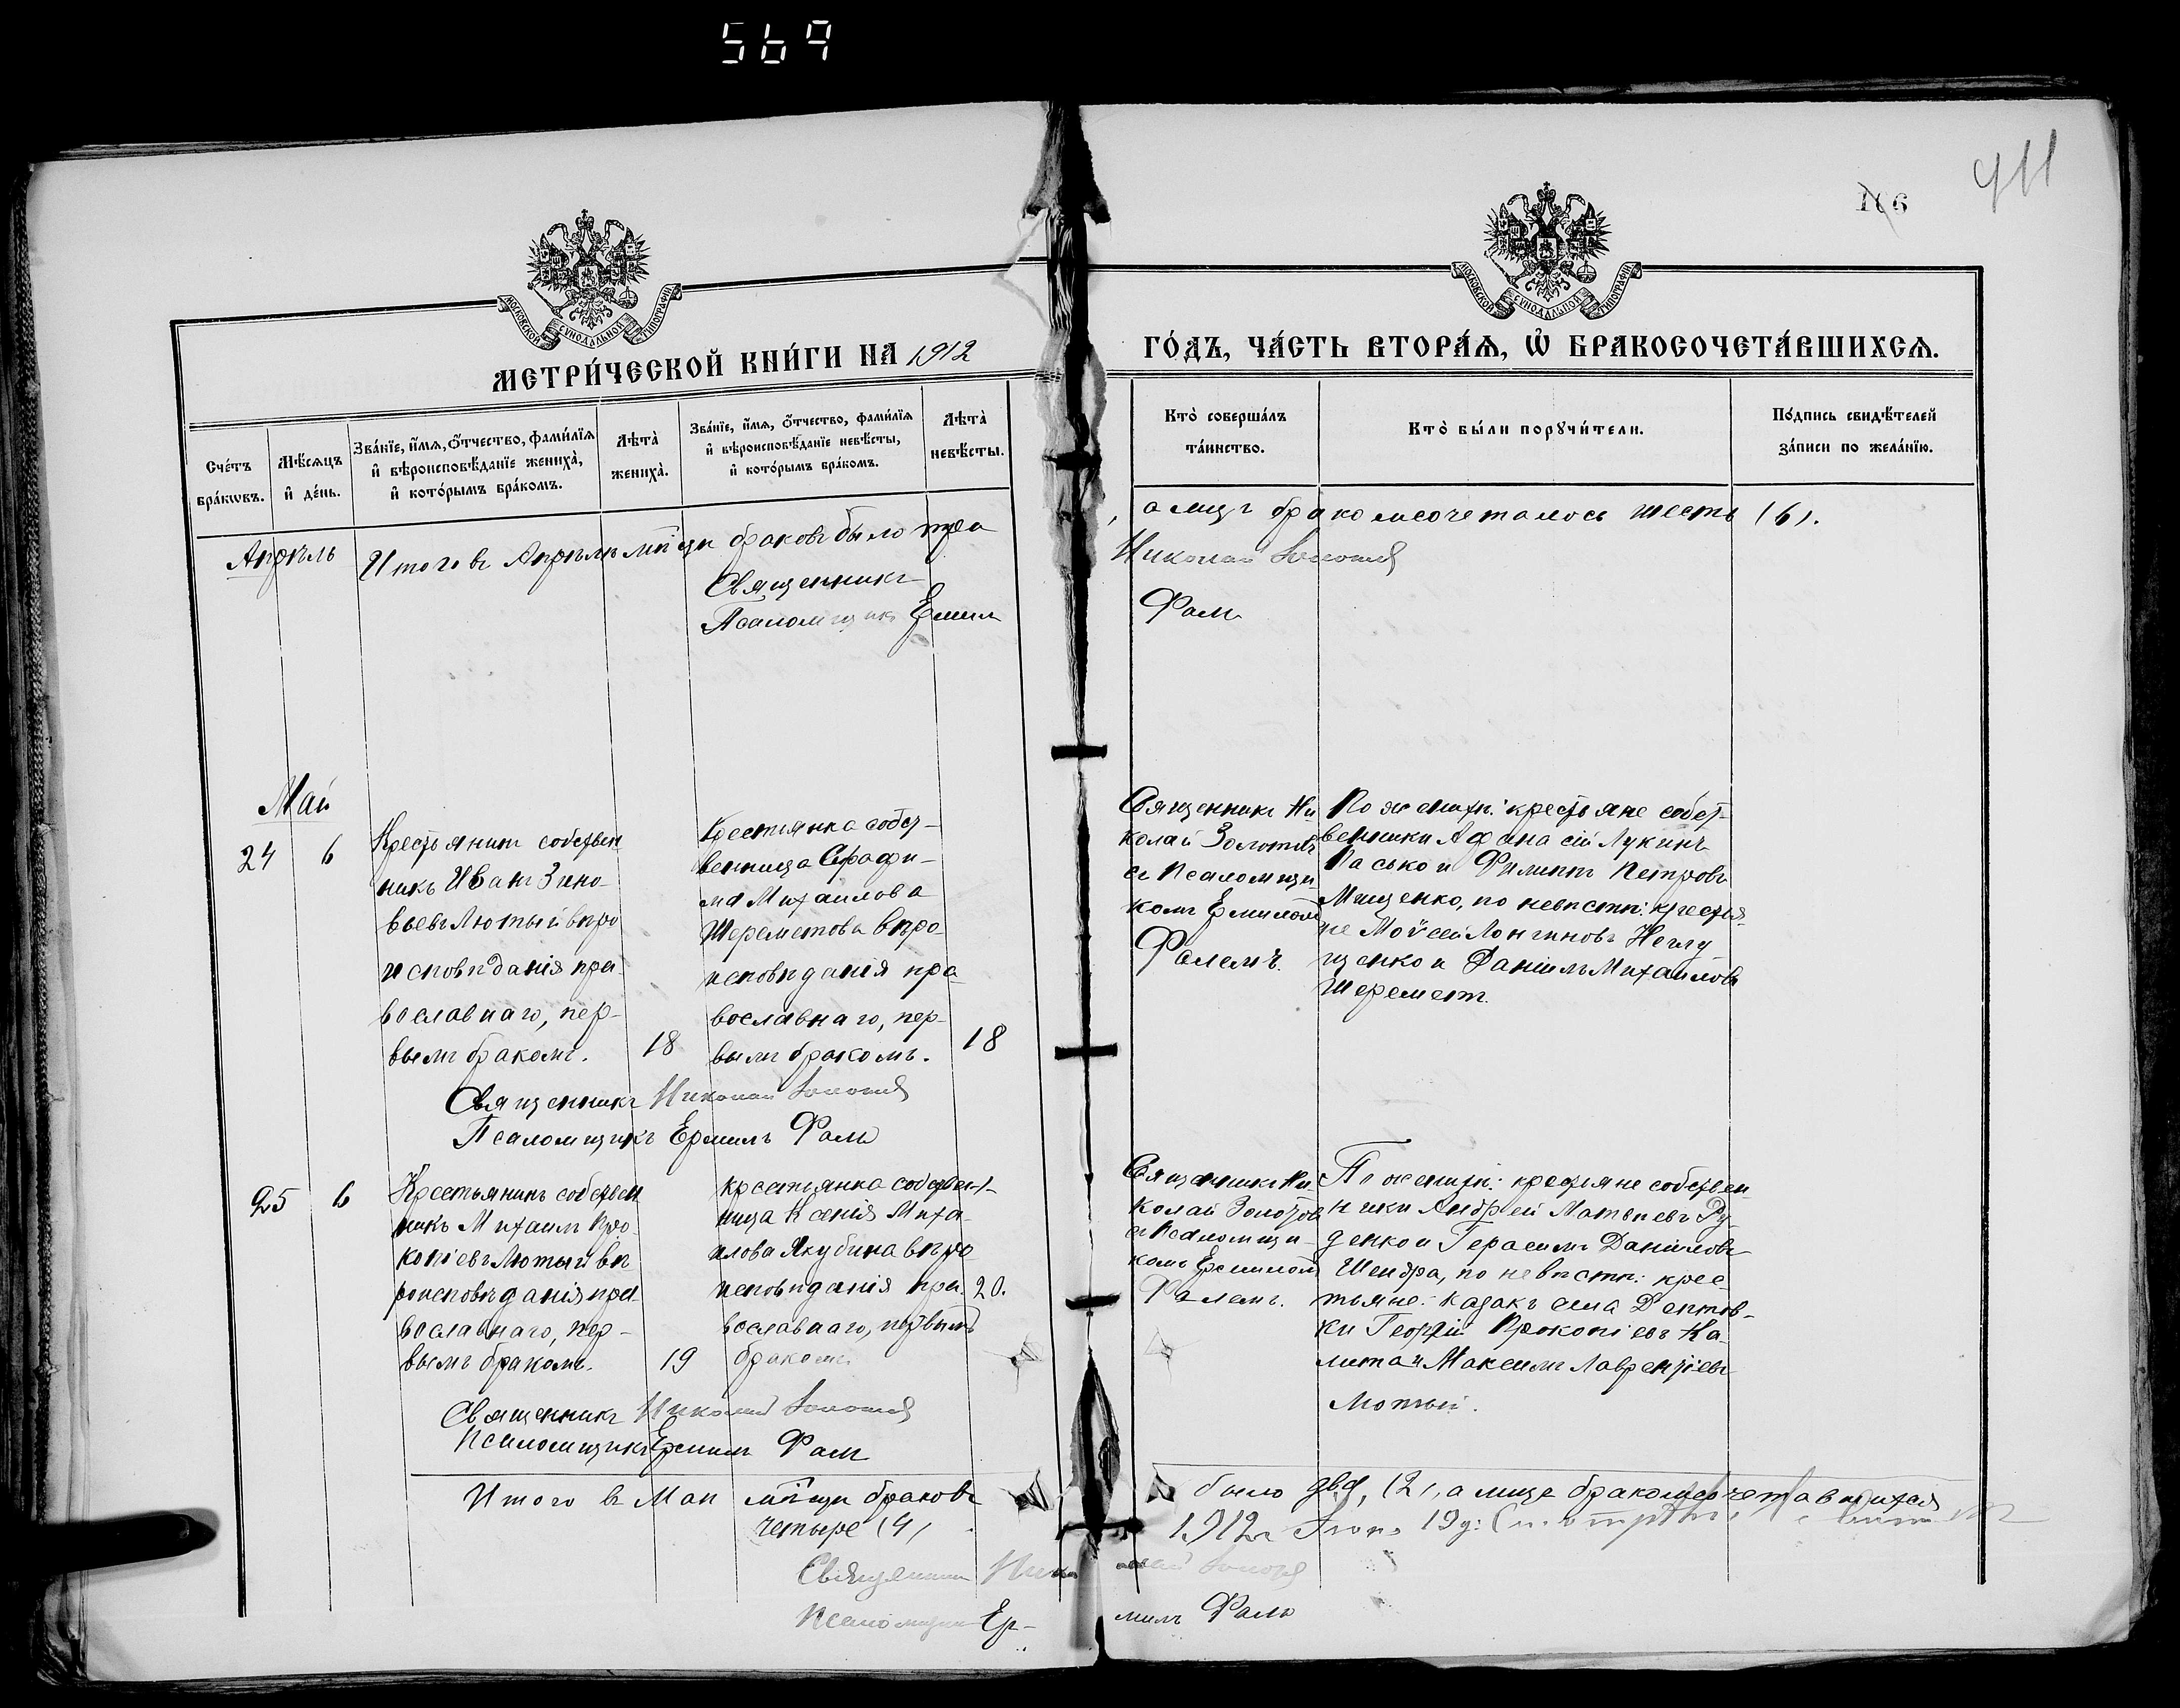 569
411
106
МОСКОВСКОЙ СѴНОДАЛЬНОЙ ТИПОГРАФІИ
МОСКОВСКОЙ СѴНОДАЛЬНОЙ ТИПОГРАФІИ
МЕТРИ́ЧЕСКОЙ КНИ́ГИ НА 1912
ГО́ДЪ, ЧА́СТЬ ВТОРА́Ѧ, Ѽ БРАКОСОЧЕТА́ВШИХСѦ.
Сче́тъ
бра́кѡвъ.
Мѣ́сѧцъ
и҆ де́нь.
Зва́нїе, и҆́мѧ, ѻ҆́тчество, фами́лїѧ
и҆ вѣроисповѣ́данїе жениха̀,
и҆ кото́рымъ бра́комъ.
Лѣта̀
жениха̀.
Зва́нїе, и҆́мѧ, ѻ҆́тчество, фами́лїѧ
и҆ вѣроисповѣ́данїе невѣ́сты,
и҆ кото́рымъ бра́комъ.
Лѣта̀
невѣ́сты.
Кто̀ соверша́лъ
та́инство.
Кто̀ бы́ли порꙋчи́тели.
По́дпись свидѣ́телей
за́писи по жела́нїю.
Апрѣль
Итого въ Апрѣлѣ мѣ̃цѣ браковъ было три
, а лицъ бракомсочеталось шесть (6).
Священникъ
Николай Золотой
Псаломщикъ Ермил
Фаль
Май
24
6
Крестьянинъ собствен
никъ Иванъ Зино-
вьевъ Лютый вѣро
исповѣданія пра-
вославнаго, пер-
вымъ бракомъ.
18
Крестьянка собст-
венница Серафи-
ма Михаилова
Шереметова вѣро
исповѣданія пра-
вославнаго, пер-
вымъ бракомъ.
18
Священникъ Ни
колай Золотой
съ Псаломщи
комъ Ермиломъ
Фалемъ.
По женихѣ: крестьяне собст-
венники Афанасій Лукинъ
Пасько и Филиппъ Петровъ
Мищенко, по невѣстѣ: крестья-
не Моѵсей Лонгиновъ
щенко и Даніилъ Михаиловъ
Шереметъ.
Священникъ Николай Золотой
Псаломщикъ Ермилъ Фаль
25
6
Крестьянинъ собствен
никъ Михаилъ Про-
копіевъ Лютый вѣ
роисповѣданія пра-
вославнаго, пер-
вымъ бракомъ.
19
Крестьянка собствен-
ница Ксенія Миха-
илова Якубина вѣро
исповѣданія пра-
вославнаго, первымъ
бракомъ.
20.
Священникъ Ни-
колай Золотой
съ Псаломщи-
комъ Ермиломъ
Фалемъ.
По женихѣ: крестьяне собствен
ники Андрей Матвѣевъ Ру-
денко и Герасимъ Даніиловъ
Шендра, по невѣстѣ: крес-
тьяне: казакъ села Дептов-
ки Георгій Прокопіевъ Ка-
лита и Максимъ Лаврентіевъ
Священникъ Николай Золотой
Псаломщикъ Ермилъ Фаль
Итого въ Маѣ мѣ̃цѣ браковъ
было два, (2), а лицъ бракомсочетавшихся
четыре (4)
1912
Священникъ Николай Золотой
Псаломщикъ Ер-
милъ Фаль